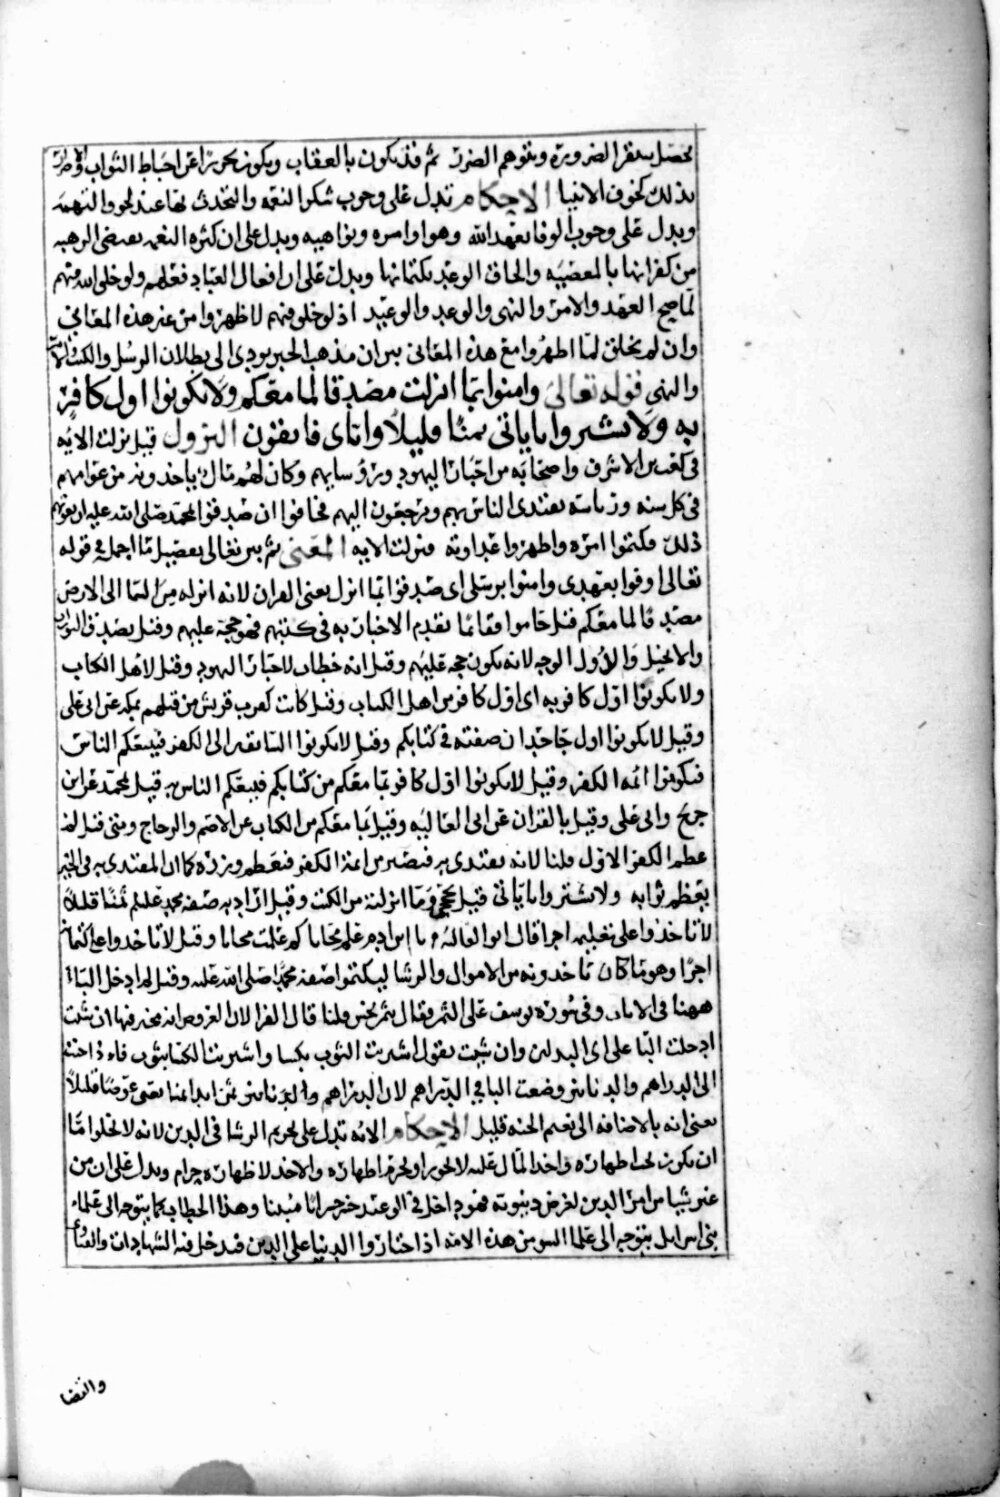 يحصل بيقين الضرورة وبتوهم الضرر ثم قد يكون بالعقاب ويكون تحرزا عن احباط الثواب والاضرار
بذلك كخوف الانبيا الاحكام تدل على وجوب شكر النعمه والتحدث بها عند نحو التهمه
ويدل على وجوب الوفا بعهد الله وهو اوامره ونواهيه ويدل على ان كثرة النعمه يقتضى الرهبه
من كفرانها بالمعصيه والحاق الوعيد بكتمانها ويدل على ان افعال العباد فعلهم ولو خلق الله فيهم
لما صح العهد والامر والنهى والوعد والوعيد اذ لو خلق فيهم لاظهروا من غير هذه المعاني
وان لم يخلق لما اظهروا مع هذه المعانى يبين ان مذهب الجبر يودى الى بطلان الرسل والكتب والامر
والنهى قوله تعالى وامنوا بما انزلت مصدقا لما معكم ولا تكونوا اول كافر
به ولا تشتروا باياتى ثمنا قليلا واياى فاتقون النزول قيل نزلت الايه
فى كعب بن الاشرف واصحابه من احبار اليهود ورؤسايهم وكان لهم ماكل ياخذونه من عوامهم
فى كل سنه ورياسة يقتدى الناس بهم ويرجعون اليهم فخافوا ان صدقوا محمدا صلى الله عليه ان يفوتهم
ذلك فكتموا امره واظهروا عداوته فنزلت الايه المعنى ثم بين تعالى تفصيل ما اجمل فى قوله
تعالى اوفوا بعهدى وامنوا برسلى اى صدقوا بما انزل يعنى القران لانه انزله من السما الى الارض
مصدقا لما معكم قيل جاموافقا لما تقدم الاخبار به فى كتبهم فهو حجة عليهم وقيل يصدق التوراة
والانجيل والاول الوجه لانه يكون حجه عليهم وقيل انه خطاب لاحبار اليهود وقيل لاهل الكتاب
ولا تكونوا اول كافر به اى اول كافر من اهل الكتاب وقيل كانت كفرت قريش من قبلهم بمكه عن ابى على
وقيل لا تكونوا اول جاحد ان صفته فى كتابكم وقيل لا تكونوا السابقين الى الكفر فيتبعكم الناس
فتكونوا ائمه الكفر وقيل لا تكونوا اول كافر بما معكم من كتابكم فيتبعكم الناس به قيل محمد عن ابن
جريج وابى على وقيل بالقران عن ابى العاليه وقيل بما معكم من الكتاب عن الاصم والزجاج ومتى قيل لم
عظم الكفر الاول قلنا لانه يقتدى به فيصير من ائمة الكفر فيعظم وزره كما ان المقتدى به فى الخير
يعظم ثوابه ولا تشتروا باياتى قيل بحججى وما انزلته من الكتب وقيل اراد به صفة محمد عليلم ثمنا قليلا
لا تاخذوا على تعليمه اجرا قال ابو العاليه يا ابن ادم علم مجانا كما علمت مجانا وقيل لا تاخذوا على كتمانه
اجرا وهو ما كان ياخذونه من الاموال والرشا ليكتموا صفة محمد صلى الله عليه وقيل لم ادخل الباء
ههنا فى الايات وفى سورة يوسف على الثمن فقال بثمن بخس قلنا قال الفرا لان العروض انه مخير فيها ان شئت
ادخلت البا على اى البدلين وان شئت تقول اشتريت الثوب بكسا واشتريت الكسا بثوب فاذا جئت
الى الدراهم والدنانير وضعت البا فى الدراهم لان الدراهم والدنانير ثمن ابدا ثمنا يعنى عوضا قليلا
يعنى انه بالاضافة الى نعيم الجنه قليل الاحكام الايه تدل على تحريم الرشا فى الدين لانه لا تخلوا اما
ان يكون يجب اظهاره واخذ المال عليه لا يجوز او يحرم اظهاره والاخذ لاظهاره حرام ويدل على ان من
غير شيا من امر الدين لغرض دنيوى فهو داخل فى الوعيد خسر خسرانا مبينا وهذا الخطاب كما يتوجه الى علماء
بنى اسرايل يتوجه الى علما السو من هذه الامه اذا اختاروا الدنيا على الدين فيدخل فيه الشهادات والفتاوى
والقضا